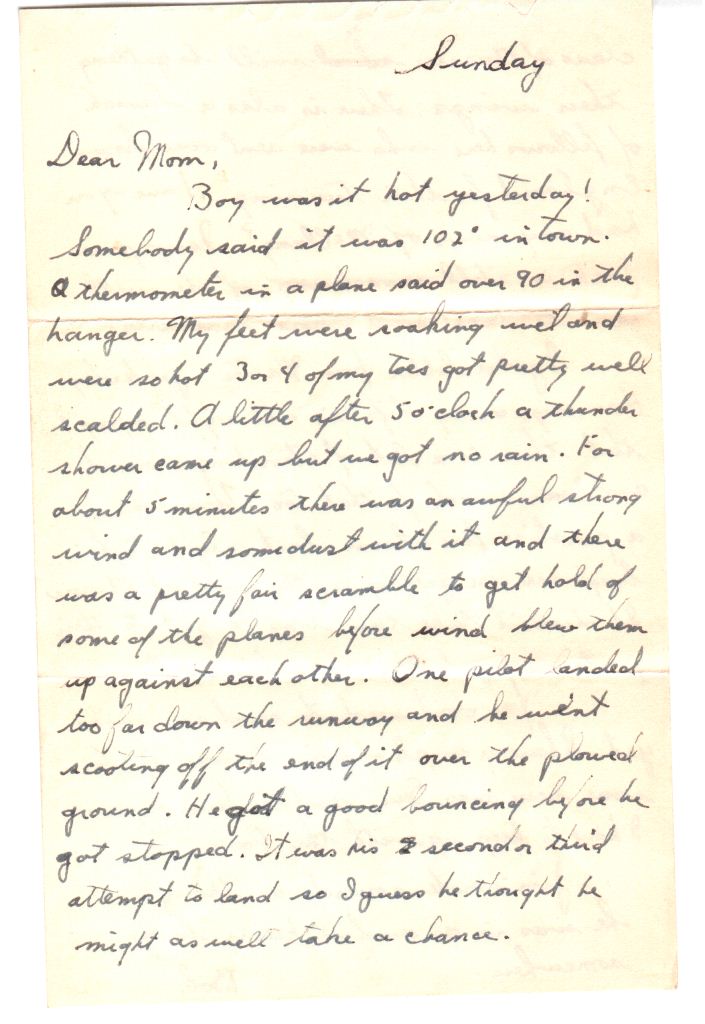 Sunday
Dear Mom,
Boy was it hot yesterday!
Somebody said it was 102° in town.
A thermometer in a plane said over 90 in the
hanger. My feet were soaking wet and
were so hot 3 or 4 of my toes got pretty well
scalded. A little after 5 o'clock a thunder
shower came up but we got no rain. For
about 5 minutes there was an awful strong
wind and some dust with it and there
was a pretty fair scramble to get hold of
some of the planes before wind blew them
up against each other. One pilot landed
too far down the runway and he went
scooting off the end of it over the plowed
ground. He got a good bouncing before he
got stopped. It was his second or third
attempt to land so I guess he thought he
might as well take a chance.